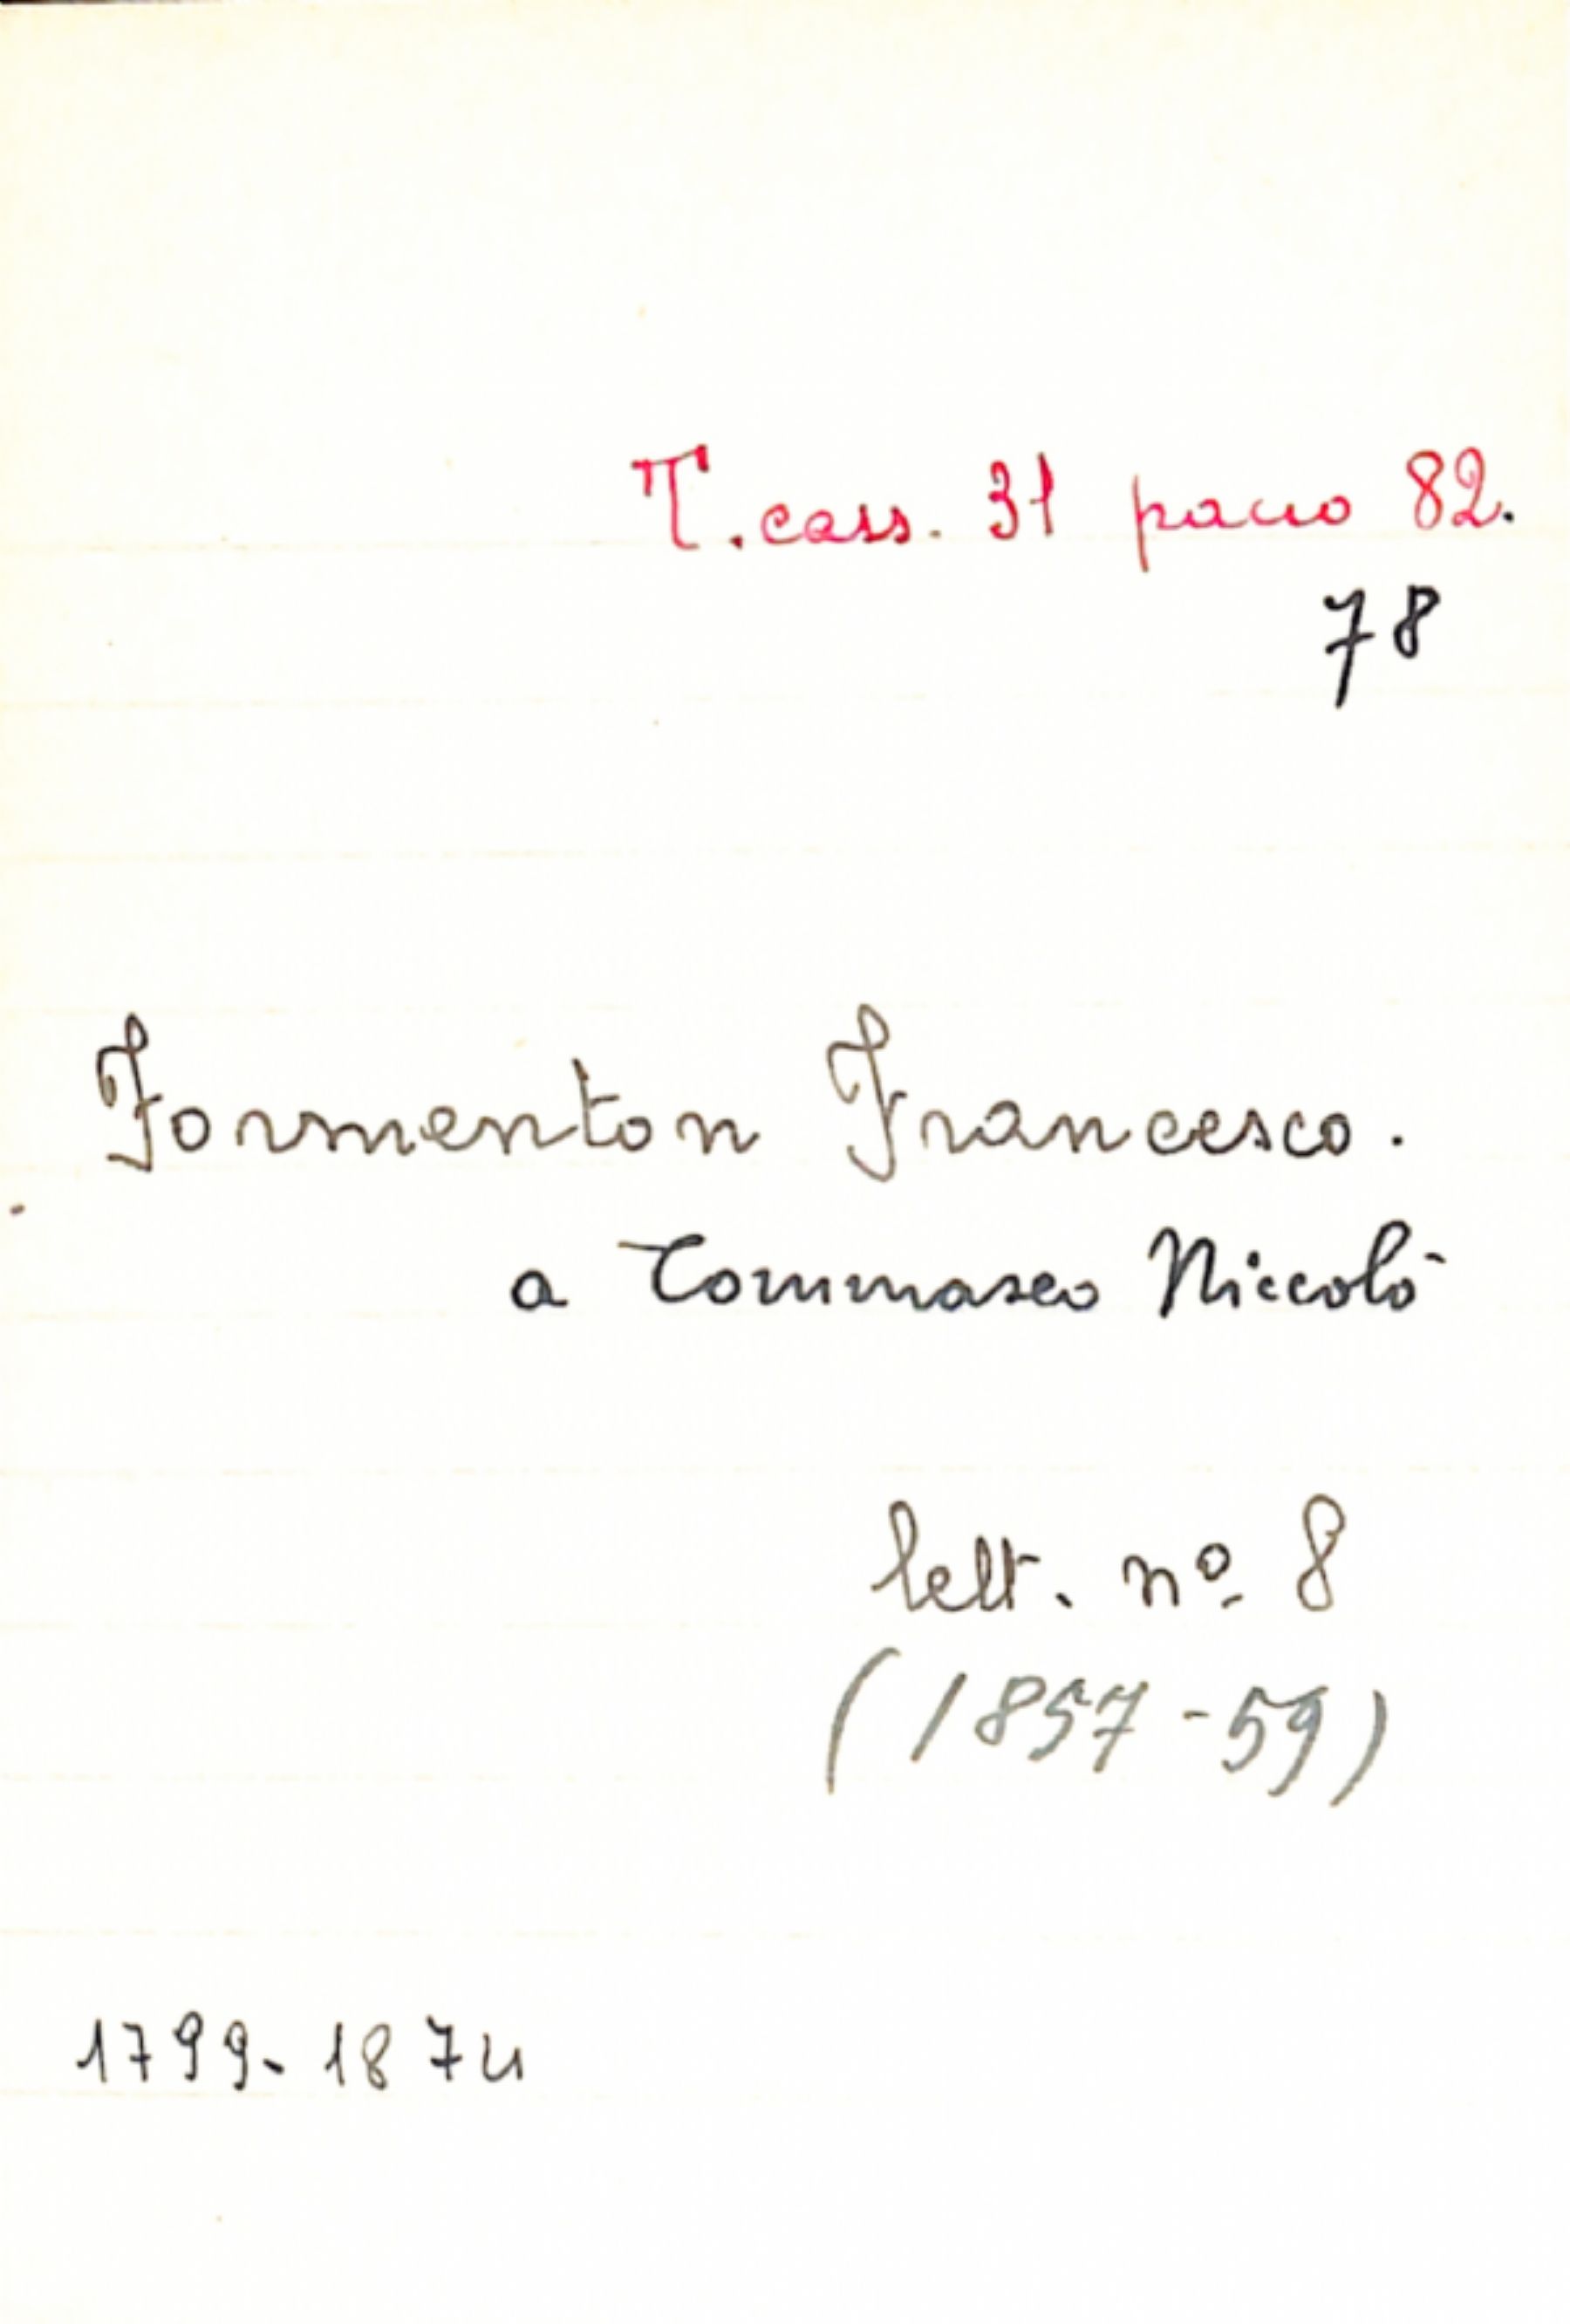 T. cass. 31 pacco 82.
78
Formenton Francesco.
a Tommaseo Niccolò
lett. nº 8
(1857-59)
1799-1874